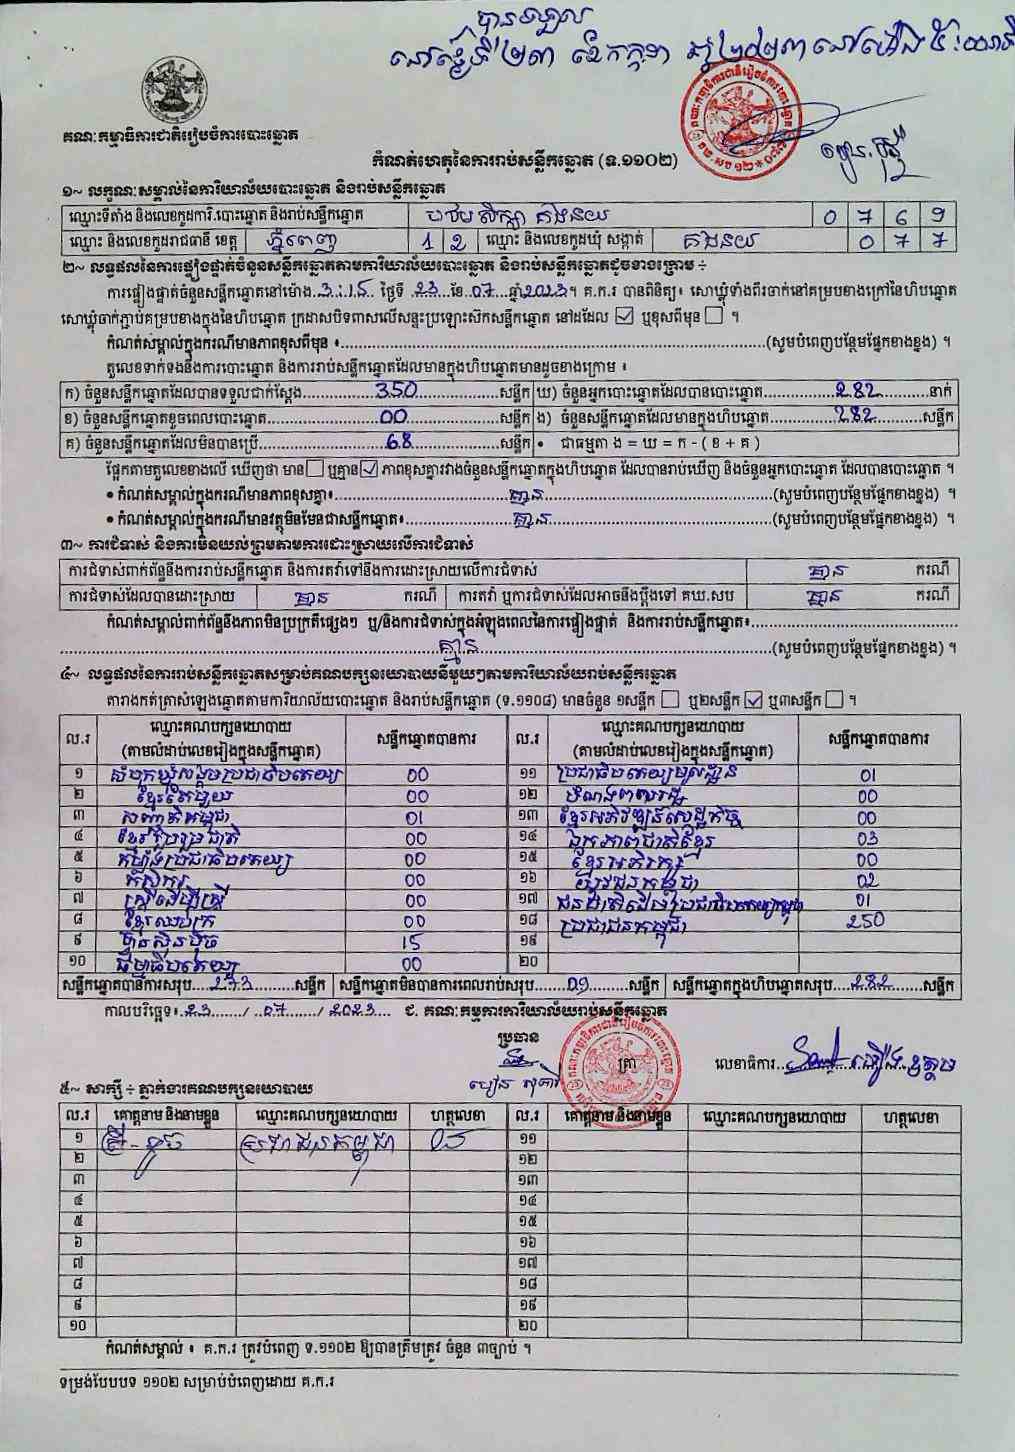 បានទទួល
នៅថ្ងៃទី ២៣ ខែ កក្កដា ឆ្នាំ ២០២៣ នៅម៉ោង ៥:
គណៈកម្មាធិការជាតិរៀបចំការបោះឆ្នោត
កំណត់ហេតុនៃការរាប់សន្លឹកឆ្នោត (ទ.១១០២)
១~ លក្ខណៈសម្គាល់នៃការិយាល័យបោះឆ្នោត និងរាប់សន្លឹកឆ្នោត
ឈ្មោះទីតាំង និងលេខកូដការិ.បោះឆ្នោត និងរាប់សន្លឹកឆ្នោត 0 7 6 9
ឈ្មោះ និងលេខកូដរាជធានី ខេត្ត ភ្នំពេញ 1 2 ឈ្មោះ និងលេខកូដឃុំ សង្កាត់ គងនយ 0 7 7
២~ លទ្ធផលនៃការផ្ទៀងផ្ទាត់ចំនួនសន្លឹកឆ្នោតតាមការិយាល័យបោះឆ្នោត និងរាប់សន្លឹកឆ្នោតដូចខាងក្រោម ÷
ការផ្ទៀងផ្ទាត់ចំនួនសន្លឹកឆ្នោតនៅម៉ោង 3:15 ថ្ងៃទី 23 ខែ 07 ឆ្នាំ 2023។ គ.ក.រ បានពិនិត្យ៖ សោឃ្លុំទាំងពីរចាក់នៅគម្របខាងក្រៅនៃហិបឆ្នោត
សោឃ្លុំចាក់ភ្ជាប់គម្របខាងក្នុងនៃហិបឆ្នោត ក្រដាសបិទពាសលើសន្ទះប្រឡោះសិកសន្លឹកឆ្នោត នៅដដែល ☑ ឬខុសពីមុន ☐ ។
កំណត់សម្គាល់ក្នុងករណីមានភាពខុសពីមុន ៖ (សូមបំពេញបន្ថែមផ្នែកខាងខ្នង) ។
តួលេខទាក់ទងនឹងការបោះឆ្នោត និងការរាប់សន្លឹកឆ្នោតដែលមានក្នុងហិបឆ្នោតមានដូចខាងក្រោម ៖
ក) ចំនួនសន្លឹកឆ្នោតដែលបានទទួលជាក់ស្តែង 350 សន្លឹក ឃ) ចំនួនអ្នកបោះឆ្នោតដែលបានបោះឆ្នោត 282 នាក់
ខ) ចំនួនសន្លឹកឆ្នោតខូចពេលបោះឆ្នោត 00 សន្លឹក ង) ចំនួនសន្លឹកឆ្នោតដែលមានក្នុងហិបឆ្នោត 282 សន្លឹក
គ) ចំនួនសន្លឹកឆ្នោតដែលមិនបានប្រើ 68 សន្លឹក • ជាធម្មតា ង = ឃ = ក - ( ខ + គ )
ផ្អែកតាមតួលេខខាងលើ ឃើញថា មាន ☐ ឬគ្មាន ☑ ភាពខុសគ្នារវាងចំនួនសន្លឹកឆ្នោតក្នុងហិបឆ្នោត ដែលបានរាប់ឃើញ និងចំនួនអ្នកបោះឆ្នោត ដែលបានបោះឆ្នោត ។
• កំណត់សម្គាល់ក្នុងករណីមានភាពខុសគ្នា៖ គ្មាន (សូមបំពេញបន្ថែមផ្នែកខាងខ្នង) ។
• កំណត់សម្គាល់ក្នុងករណីមានវត្ថុមិនមែនជាសន្លឹកឆ្នោត៖ គ្មាន (សូមបំពេញបន្ថែមផ្នែកខាងខ្នង) ។
៣~ ការជំទាស់ និងការមិនយល់ព្រមតាមការដោះស្រាយលើការជំទាស់
ការជំទាស់ពាក់ព័ន្ធនឹងការរាប់សន្លឹកឆ្នោត និងការតវ៉ាទៅនឹងការដោះស្រាយលើការជំទាស់ គ្មាន ករណី
ការជំទាស់ដែលបានដោះស្រាយ គ្មាន ករណី ការតវ៉ា ឬការជំទាស់ដែលអាចនឹងប្តឹងទៅ គឃ.សប គ្មាន ករណី
កំណត់សម្គាល់ពាក់ព័ន្ធនឹងភាពមិនប្រក្រតីផ្សេងៗ ឬ/និងការជំទាស់ក្នុងអំឡុងពេលនៃការផ្ទៀងផ្ទាត់ និងការរាប់សន្លឹកឆ្នោត៖
គ្មាន (សូមបំពេញបន្ថែមផ្នែកខាងខ្នង) ។
៤~ លទ្ធផលនៃការរាប់សន្លឹកឆ្នោតសម្រាប់គណបក្សនយោបាយនីមួយៗតាមការិយាល័យរាប់សន្លឹកឆ្នោត
តារាងកត់ត្រាសំឡេងឆ្នោតតាមការិយាល័យបោះឆ្នោត និងរាប់សន្លឹកឆ្នោត (ទ.១១០៨) មានចំនួន ១សន្លឹក ☐ ឬ២សន្លឹក ☑ ឬ៣សន្លឹក ☐ ។
ល.រ ឈ្មោះគណបក្សនយោបាយ (តាមលំដាប់លេខរៀងក្នុងសន្លឹកឆ្នោត) សន្លឹកឆ្នោតបានការ ល.រ ឈ្មោះគណបក្សនយោបាយ (តាមលំដាប់លេខរៀងក្នុងសន្លឹកឆ្នោត) សន្លឹកឆ្នោតបានការ
១ សំបុកឃ្មុំសង្គមប្រជាធិបតេយ្យ 00 ១១ ប្រជាធិបតេយ្យមូលដ្ឋាន 01
២ ខ្មែរតែមួយ 00 ១២ 00
៣ សញ្ជាតិកម្ពុជា 01 ១៣ ខ្មែរអភិវឌ្ឍន៍សេដ្ឋកិច្ច 00
៤ ខ្មែររួបរួមជាតិ 00 ១៤ ឯកភាពជាតិខ្មែរ 03
៥ កម្លាំងប្រជាធិបតេយ្យ 00 ១៥ ខ្មែរអភិរក្ស 00
៦ កសិករ 00 ១៦ យុវជនកម្ពុជា 02
៧ ស្ត្រីដើម្បីស្ត្រី 00 ១៧ ជនជាតិដើមប្រជាធិបតេយ្យកម្ពុជា 01
៨ ខ្មែរឈប់ក្រ 00 ១៨ ប្រជាជនកម្ពុជា 250
៩ ហ្វ៊ុនស៊ិនប៉ិច 15 ១៩
១០ ធម្មាធិបតេយ្យ 00 ២០
សន្លឹកឆ្នោតបានការសរុប 273 សន្លឹក សន្លឹកឆ្នោតមិនបានការពេលរាប់សរុប 09 សន្លឹក សន្លឹកឆ្នោតក្នុងហិបឆ្នោតសរុប 282 សន្លឹក
កាលបរិច្ឆេទ៖ 23 / 07 / 2023 ជ. គណៈកម្មការការិយាល័យរាប់សន្លឹកឆ្នោត
ប្រធាន ត្រា លេខាធិការ
៥~ សាក្សី ÷ ភ្នាក់ងារគណបក្សនយោបាយ
ល.រ គោត្តនាម និងនាមខ្លួន ឈ្មោះគណបក្សនយោបាយ ហត្ថលេខា ល.រ គោត្តនាម និងនាមខ្លួន ឈ្មោះគណបក្សនយោបាយ ហត្ថលេខា
១ ប្រជាជនកម្ពុជា ១១
២ ១២
៣ ១៣
៤ ១៤
៥ ១៥
៦ ១៦
៧ ១៧
៨ ១៨
៩ ១៩
១០ ២០
កំណត់សម្គាល់ ៖ គ.ក.រ ត្រូវបំពេញ ទ.១១០២ ឱ្យបានត្រឹមត្រូវ ចំនួន ៣ច្បាប់ ។
ទម្រង់បែបបទ ១១០២ សម្រាប់បំពេញដោយ គ.ក.រ